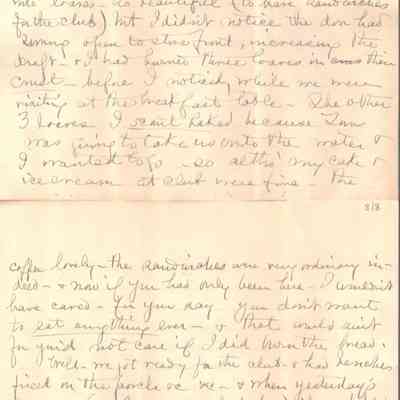 loaves - so beautiful (to have sandwiches
for the club) but I didn't notice the door had
swung open to stove front, increasing the
draft - & I had burned three loaves in crust
crust - before I noticed, while we were
visiting at the breakfast table - The other
3 loaves I semi baked because
was going to take us onto the water &
I wanted to go - so altho' my cake &
ice cream at club were fine - the
8/8
coffee lovely - the sandwiches were very ordinary in-
deed - & now if you had only been here - I wouldn't
have cared - for you say you don't want
to eat anything ever - & that would suit
for you'd not care if I did burn the bread.
Well - we got ready for the club - & had benches
fixed on the porch &c &c - & when yesterday's